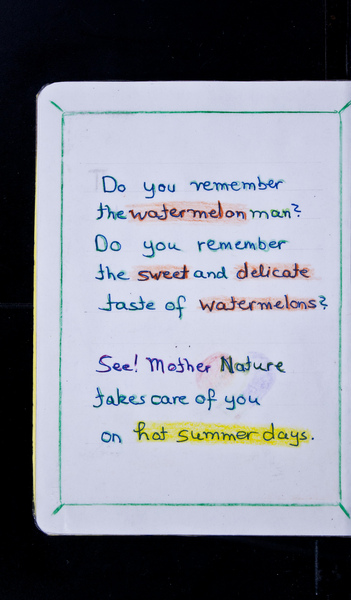 Do you remember
the watermelon man?
Do you remember
the sweet and delicate
taste of watermelons?
See! Mother Nature
takes care of you
on hot summer days.